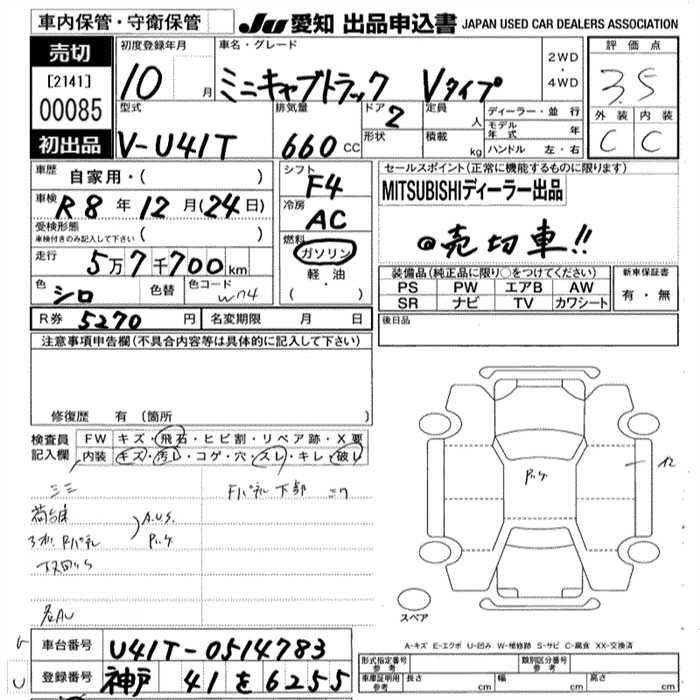 車内保管・守衛保管
JU 愛知 出品申込書 JAPAN USED CAR DEALERS ASSOCIATION
売切
[2141]
00085
初出品
初度登録年月
10 月
車名・グレード
ミニキャブトラック Vタイプ
2WD
・
4WD
評価点
3.5
外装 内装
C C
型式
V-U41T
排気量
660 CC
ドア
2
形状
定員
人
積載
kg
ディーラー・並行
モデル年式 年
ハンドル 左・右
車歴
自家用・( )
車検
R8 年 12 月 (24 日)
受検形態
車検付きのみ記入して下さい ( )
走行
5万7千700km
色
シロ
色替
色コード
W04
シフト
F4
冷房
AC
燃料
ガソリン
・
軽油
( ・ )
セールスポイント(正常に機能するものに限ります)
MITSUBISHIディーラー出品
◎売切車!!
装備品(純正品に限り○をつけてください)
PS PW エアB AW
SR ナビ TV カワシート
新車保証書
有・無
R券 5270 円
名変期限 月 日
後日品
注意事項申告欄(不具合内容等は具体的に記入して下さい)
修復歴 有(箇所 )
検査員
記入欄
FW キズ・飛石・ヒビ割・リペア跡・X要
内装 キズ・汚レ・コゲ・穴・スレ・キレ・破レ
Fパネル下部
A.U.S.
スペア
A-キズ E-エクボ U-凹み W-補修跡 S-サビ C-腐食 XX-交換済
車台番号 U41T-0514783
登録番号 神戸 41 を 6255
形式指定番号
参考
類別区分番号
参考
車庫証明用
参考
長さ cm 幅 cm 高さ cm